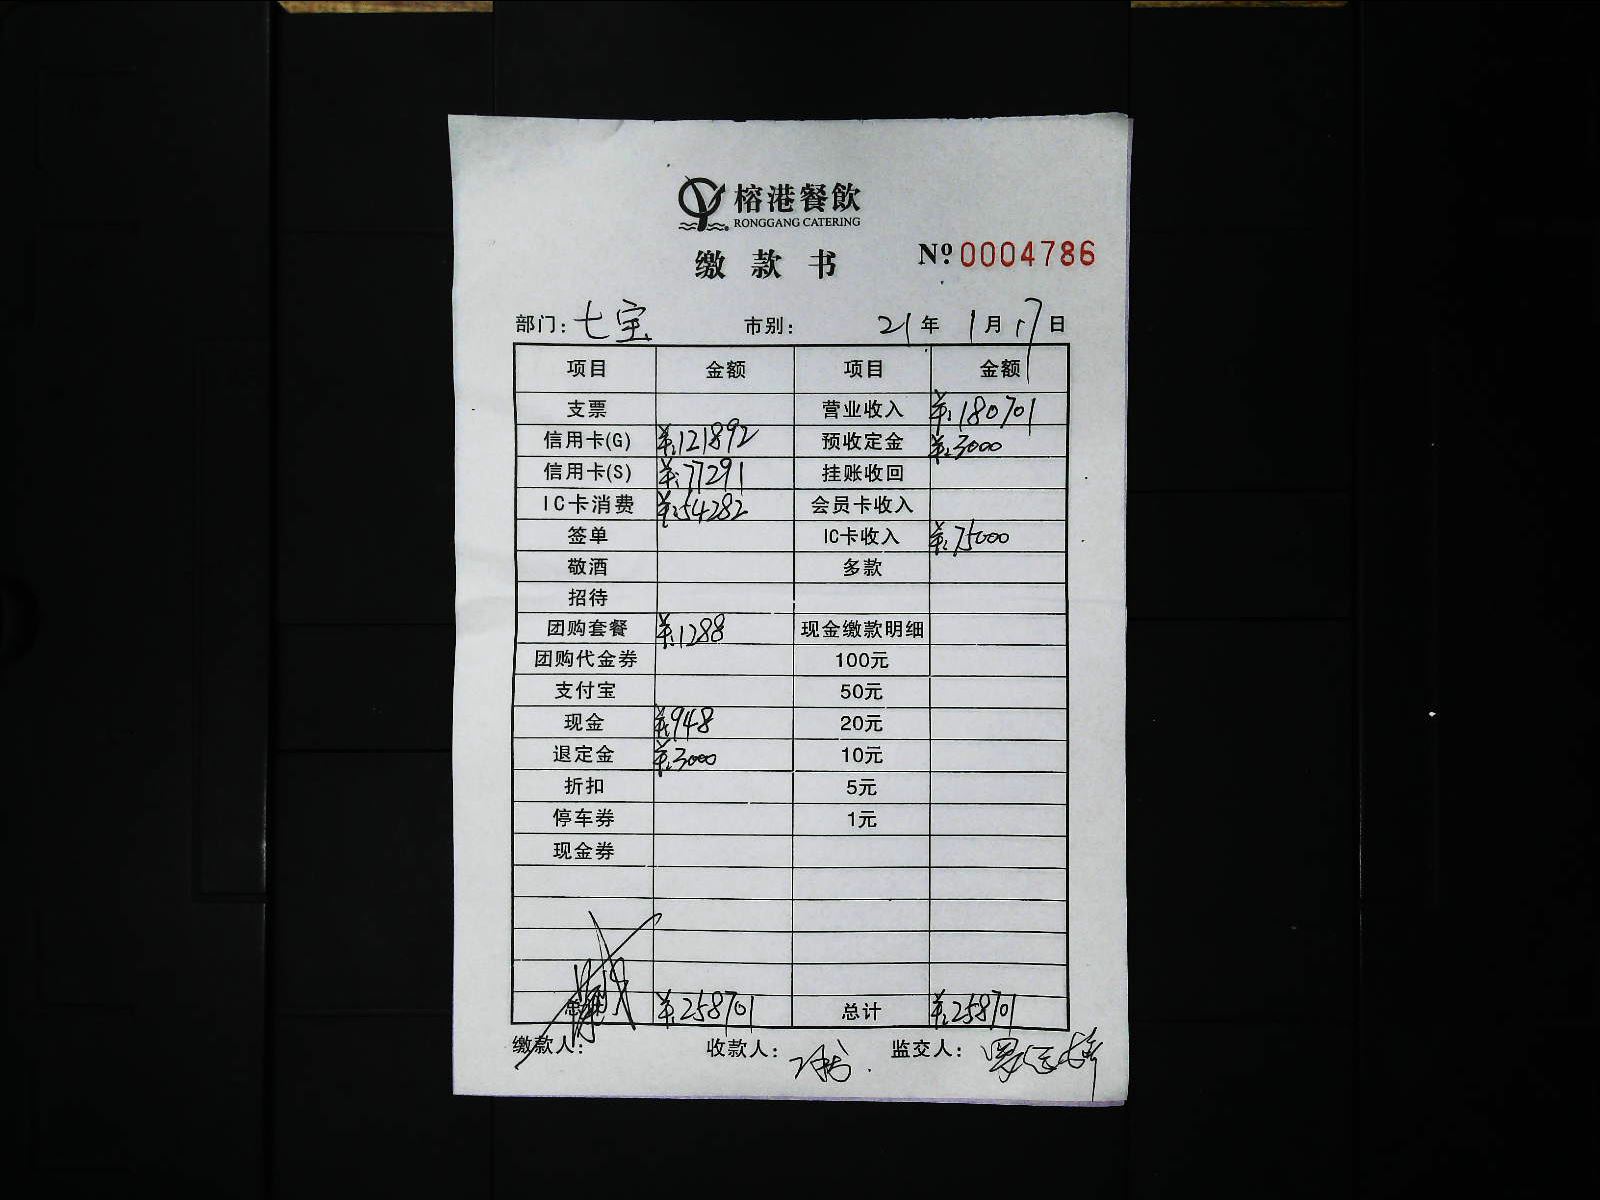 榕港餐飲
RONGGANG CATERING
缴款书 Nº 0004786
部门: 七宝 市别: 21年 1月 17日
项目 金额 项目 金额
支票 营业收入 ¥:180701
信用卡(G) ¥:121892 预收定金 ¥:3000
信用卡(S) ¥:77291 挂账收回
IC卡消费 ¥:54282 会员卡收入
签单 IC卡收入 ¥:75000
敬酒 多款
招待
团购套餐 ¥:1288 现金缴款明细
团购代金券 100元
支付宝 50元
现金 ¥:948 20元
退定金 ¥:3000 10元
折扣 5元
停车券 1元
现金券
总计 ¥:258701 总计 ¥:258701
缴款人: 收款人: 监交人: